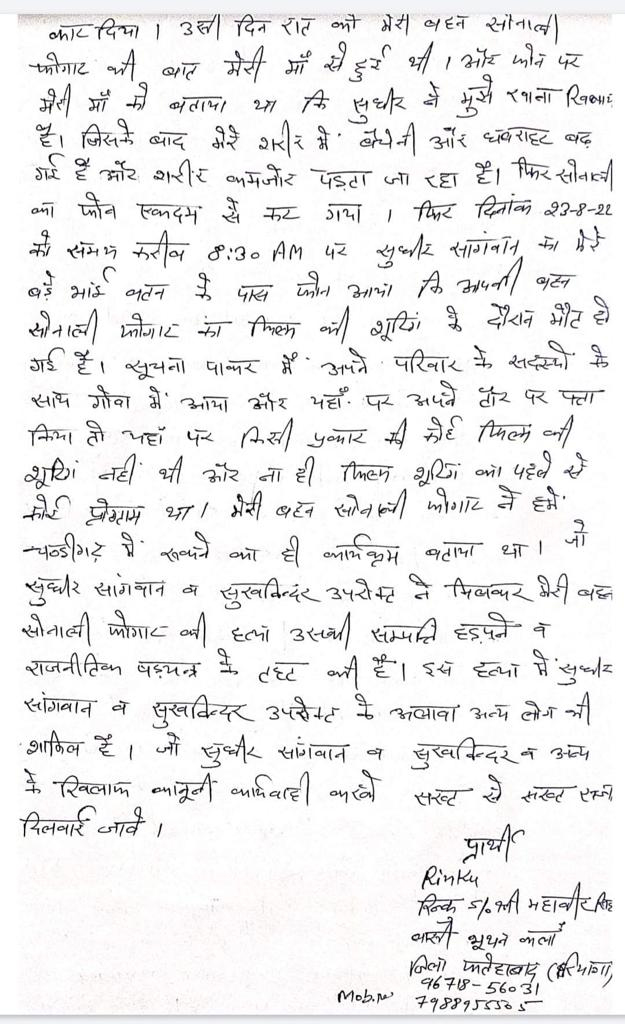 काट दिया । उसी दिन रात को मेरी बहन सोनाली
फोगाट की बात मेरी माँ से हुई थी । और फोन पर
मेरी माँ को बताया था कि सुधीर ने मुझे खाना खिलाया
है। जिसके बाद मेरे शरीर में बेचेनी और घबराहट बढ़
गई है और शरीर कमजोर पड़ता जा रहा है। फिर सोनाली
का फोन एकदम से कट गया । फिर दिनांक 23-8-22
को समय करीब 8:30 AM पर सुधीर सांगवान का मेरे
बड़े भाई वतन के पास फोन आया कि आपकी बहन
सोनाली फोगाट का फिल्म की शूटिंग के दौरान मौत हो
गई है। सूचना पाकर मैं अपने परिवार के सदस्यों के
साथ गोवा में आया और यहाँ पर अपने तौर पर पता
किया तो यहाँ पर किसी प्रकार की कोई फिल्म की
शूटिंग नहीं थी और ना ही फिल्म शूटिंग का पहले से
कोई प्रोग्राम था । मेरी बहन सोनाली फोगाट ने हमें
चण्डीगढ़ में रूकने का ही कार्यक्रम बताया था । जो
सुधीर सांगवान व सुखविन्दर उपरोक्त ने मिलकर मेरी बहन
सोनाली फोगाट की हत्या उसकी सम्पति हड़पने व
राजनीतिक षड़यन्त्र के तहत की है। इस हत्या में सुधीर
सांगवान व सुखविन्दर उपरोक्त के अलावा अन्य लोग भी
शामिल है । जो सुधीर सांगवान व सुखविन्दर व अन्य
के खिलाफ कानूनी कार्यवाही करके सख्त से सख्त सजा
दिलवाई जावे ।
प्रार्थी
Rinku
रिन्कू S/o श्री महावीर सिंह
वासी भूथन कलाँ
जिला फतेहाबाद (हरियाणा)
96718-56031
Mob.no 7988955505